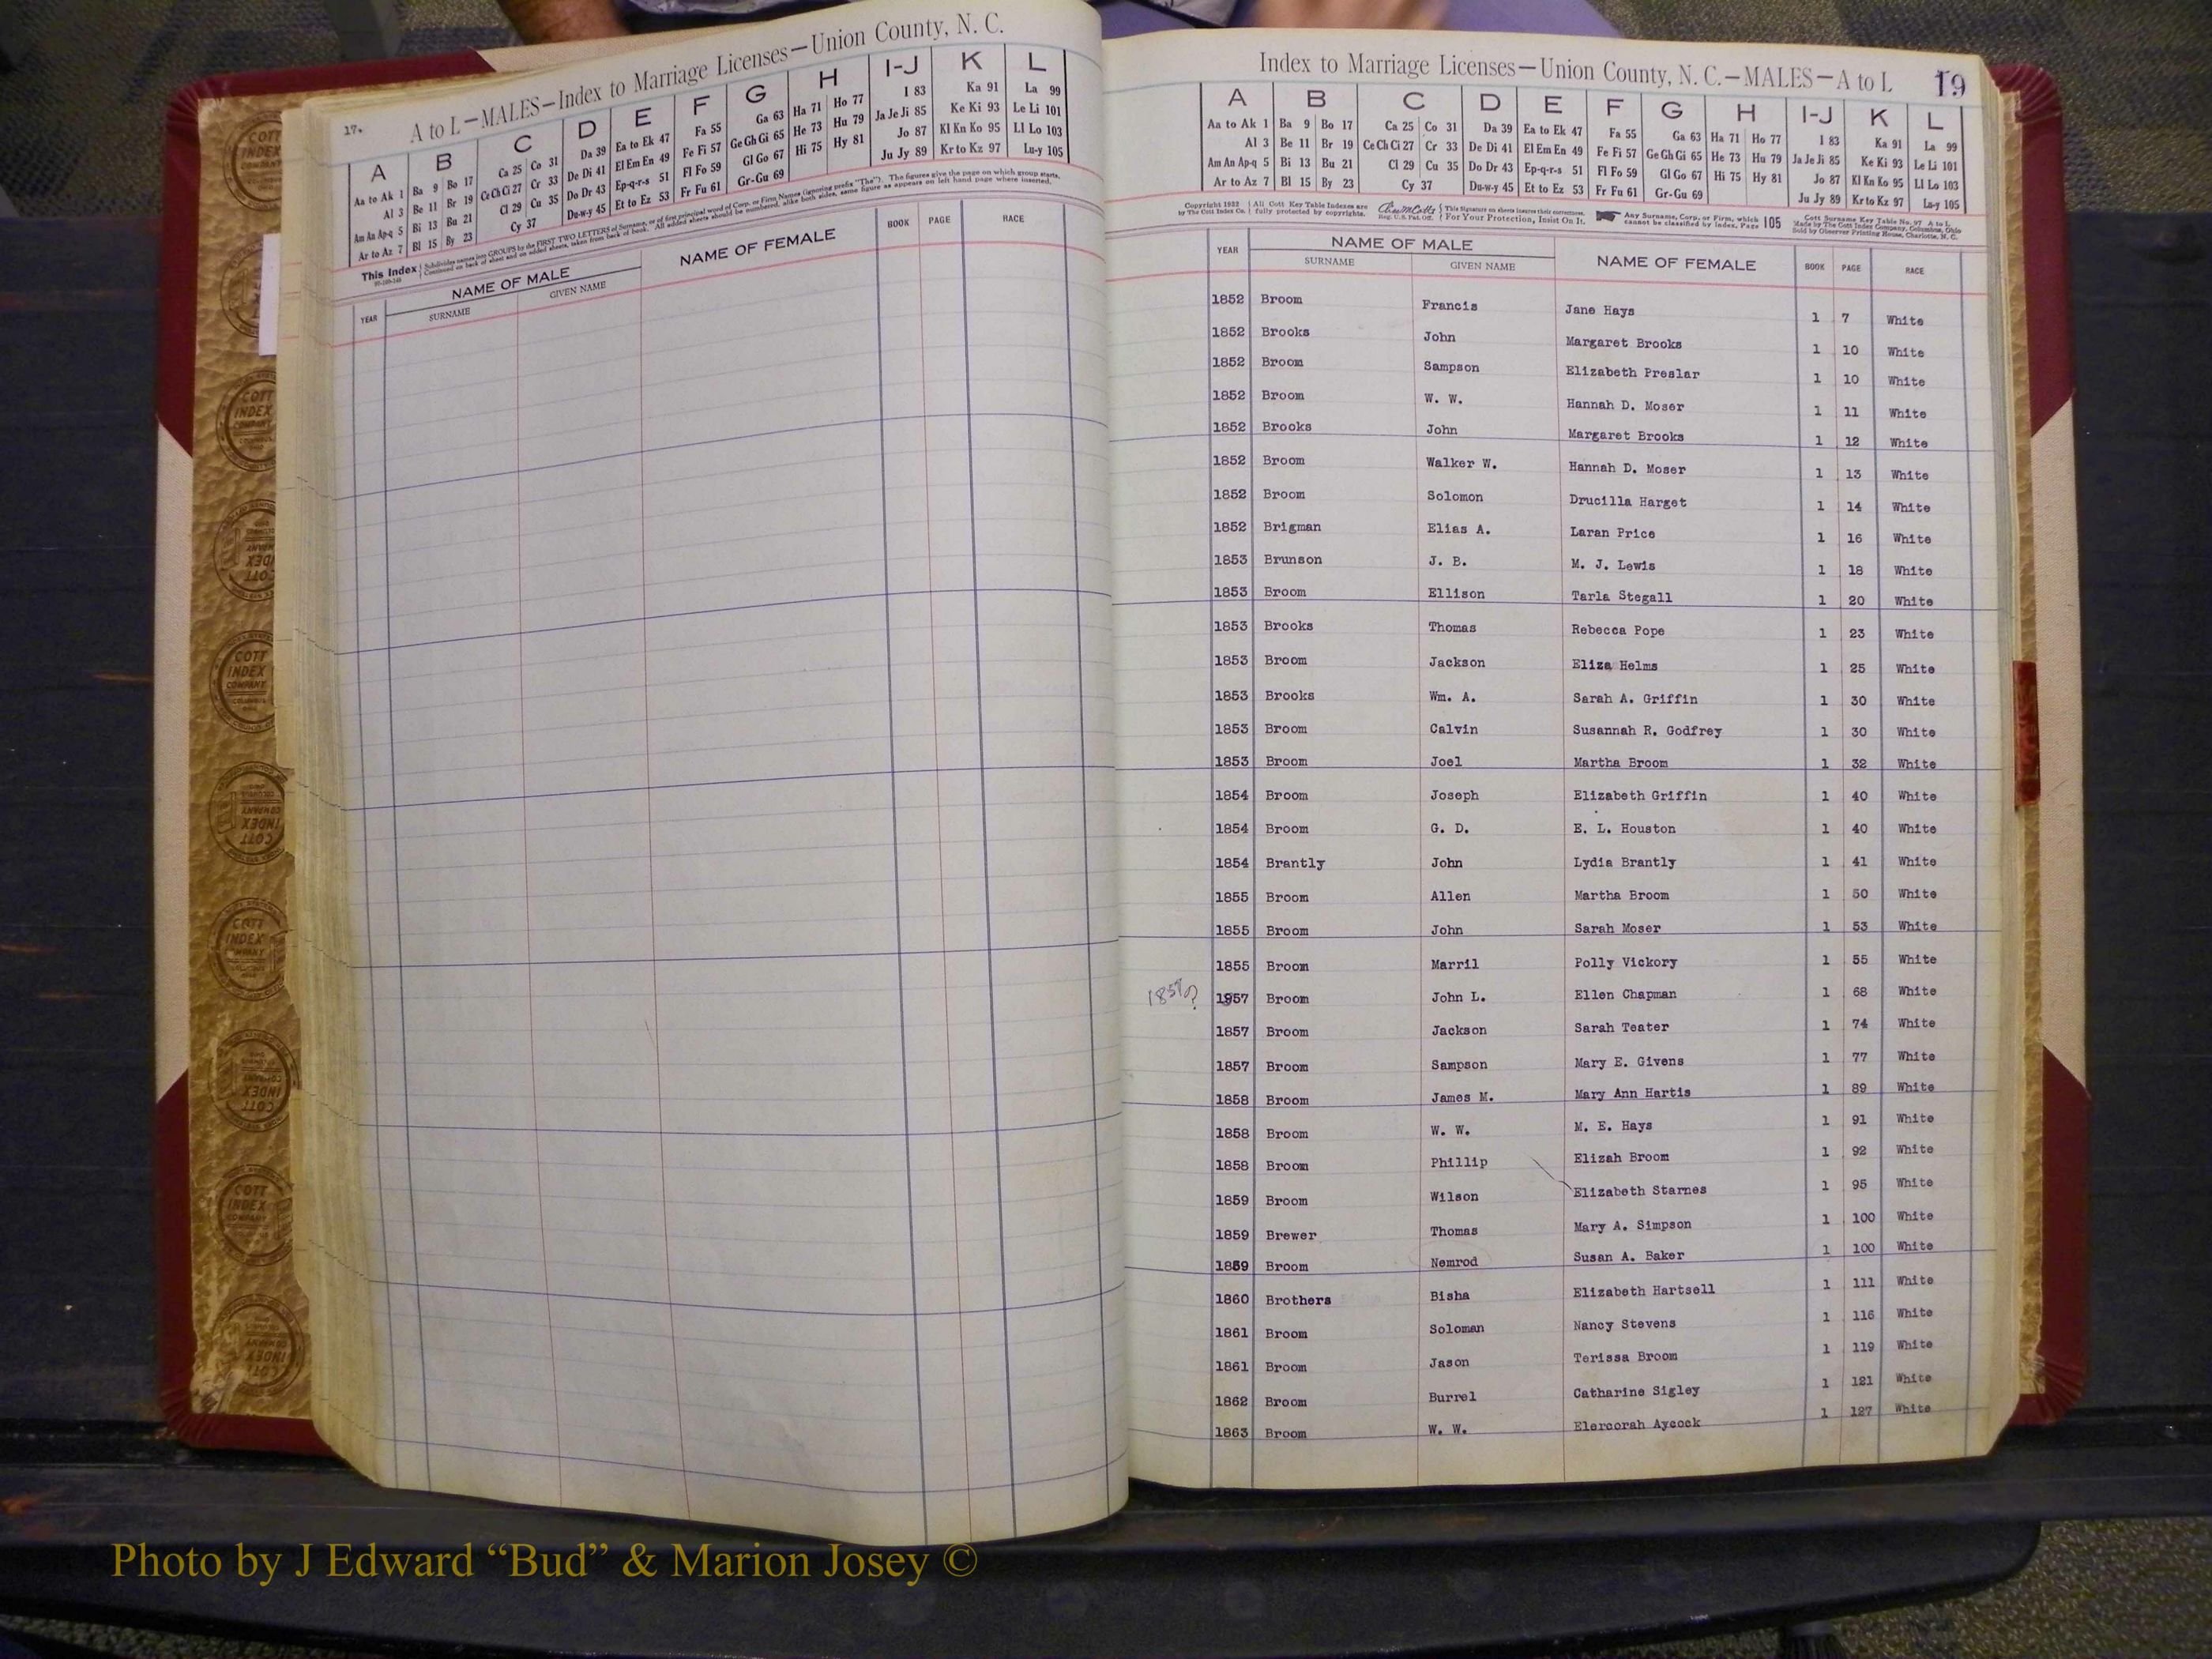 A to L—MALES—Index to Marriage Licenses—Union County, N. C.
17.
A B C D E F G H I-J K L
Aa to Ak 1 Ba 9 Bo 17 Ca 25 Co 31 Da 39 Ea to Ek 47 Fa 55 Ga 63 Ha 71 Ho 77 I 83 Ka 91 La 99
Al 3 Be 11 Br 19 Ce Ch Ci 27 Cr 33 De Di 41 El Em En 49 Fe Fi 57 Ge Gh Gi 65 He 73 Hu 79 Ja Je Ji 85 Ke Ki 93 Le Li 101
Am An Ap-q 5 Bi 13 Bu 21 Cl 29 Cu 35 Do Dr 43 Ep-q-r-s 51 Fl Fo 59 Gl Go 67 Hi 75 Hy 81 Jo 87 Kl Kn Ko 95 Ll Lo 103
Ar to Az 7 Bl 15 By 23 Cy 37 Du-w-y 45 Et to Ez 53 Fr Fu 61 Gr-Gu 69 Ju Jy 89 Kr to Kz 97 Lu-y 105
This Index Subdivides names into GROUPS by the FIRST TWO LETTERS of Surname, or of first principal word of Corp. or Firm Names (ignoring prefix "The"). The figures give the page on which group starts.
Continued on back of sheet and on added sheets, taken from back of book. All added sheets should be numbered, alike both sides, same figure as appears on left hand page where inserted.
YEAR NAME OF MALE NAME OF FEMALE BOOK PAGE RACE
SURNAME GIVEN NAME
Index to Marriage Licenses—Union County, N. C.—MALES—A to L 19
A B C D E F G H I-J K L
Aa to Ak 1 Ba 9 Bo 17 Ca 25 Co 31 Da 39 Ea to Ek 47 Fa 55 Ga 63 Ha 71 Ho 77 I 83 Ka 91 La 99
Al 3 Be 11 Br 19 Ce Ch Ci 27 Cr 33 De Di 41 El Em En 49 Fe Fi 57 Ge Gh Gi 65 He 73 Hu 79 Ja Je Ji 85 Ke Ki 93 Le Li 101
Am An Ap-q 5 Bi 13 Bu 21 Cl 29 Cu 35 Do Dr 43 Ep-q-r-s 51 Fl Fo 59 Gl Go 67 Hi 75 Hy 81 Jo 87 Kl Kn Ko 95 Ll Lo 103
Ar to Az 7 Bl 15 By 23 Cy 37 Du-w-y 45 Et to Ez 53 Fr Fu 61 Gr-Gu 69 Ju Jy 89 Kr to Kz 97 Lu-y 105
Copyright 1932 All Cott Key Table Indexes are This Signature on sheets insures their correctness. Any Surname, Corp. or Firm, which 105 Cott Surname Key Table No. 97 A to L
by The Cott Index Co. fully protected by copyrights. Reg. U.S. Pat. Off. For Your Protection, Insist On It. cannot be classified by Index, Page Made by The Cott Index Company, Columbus, Ohio
Sold by Observer Printing House, Charlotte, N. C.
YEAR NAME OF MALE NAME OF FEMALE BOOK PAGE RACE
SURNAME GIVEN NAME
1852 Broom Francis Jane Hays 1 7 White
1852 Brooks John Margaret Brooks 1 10 White
1852 Broom Sampson Elizabeth Preslar 1 10 White
1852 Broom W. W. Hannah D. Moser 1 11 White
1852 Brooks John Margaret Brooks 1 12 White
1852 Broom Walker W. Hannah D. Moser 1 13 White
1852 Broom Solomon Drucilla Harget 1 14 White
1852 Brigman Elias A. Laran Price 1 16 White
1853 Brunson J. B. M. J. Lewis 1 18 White
1853 Broom Ellison Tarla Stegall 1 20 White
1853 Brooks Thomas Rebecca Pope 1 23 White
1853 Broom Jackson Eliza Helms 1 25 White
1853 Brooks Wm. A. Sarah A. Griffin 1 30 White
1853 Broom Calvin Susannah R. Godfrey 1 30 White
1853 Broom Joel Martha Broom 1 32 White
1854 Broom Joseph Elizabeth Griffin 1 40 White
1854 Broom G. D. E. L. Houston 1 40 White
1854 Brantly John Lydia Brantly 1 41 White
1855 Broom Allen Martha Broom 1 50 White
1855 Broom John Sarah Moser 1 53 White
1855 Broom Marril Polly Vickory 1 55 White
1857? 1957 Broom John L. Ellen Chapman 1 68 White
1857 Broom Jackson Sarah Teater 1 74 White
1857 Broom Sampson Mary E. Givens 1 77 White
1858 Broom James M. Mary Ann Hartis 1 89 White
1858 Broom W. W. M. E. Hays 1 91 White
1858 Broom Phillip Elizah Broom 1 92 White
1859 Broom Wilson Elizabeth Starnes 1 95 White
1859 Brewer Thomas Mary A. Simpson 1 100 White
1859 Broom Nemrod Susan A. Baker 1 100 White
1860 Brothers Bisha Elizabeth Hartsell 1 111 White
1861 Broom Soloman Nancy Stevens 1 116 White
1861 Broom Jason Terissa Broom 1 119 White
1862 Broom Burrel Catharine Sigley 1 121 White
1863 Broom W. W. Elercorah Aycock 1 127 White
COTT INDEX COMPANY
Photo by J Edward “Bud” & Marion Josey ©